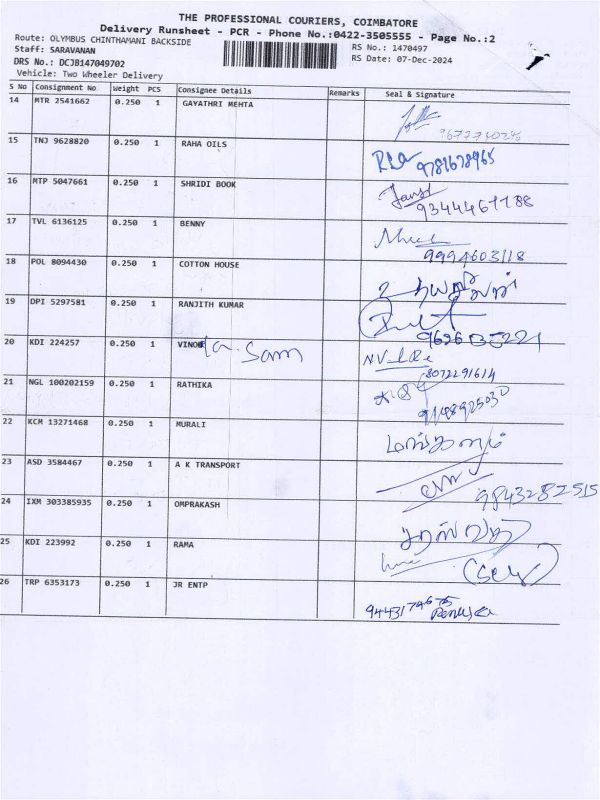 THE PROFESSIONAL COURIERS, COIMBATORE
Delivery Runsheet - PCR - Phone No.:0422-3505555 - Page No.:2
Route: OLYMBUS CHINTHAMANI BACKSIDE
RS No.: 1470497
Staff: SARAVANAN
RS Date: 07-Dec-2024
DRS No.: DCJB147049702
Vehicle: Two Wheeler Delivery
S No Consignment No Weight PCS Consignee Details Remarks Seal & Signature
14 MTR 2541662 0.250 1 GAYATHRI MEHTA
15 TNJ 9628820 0.250 1 RAHA OILS
16 MTP 5047661 0.250 1 SHRIDI BOOK
17 TVL 6136125 0.250 1 BENNY
9994603118
18 POL 8094430 0.250 1 COTTON HOUSE
19 DPI 5297581 0.250 1 RANJITH KUMAR
20 KDI 224257 0.250 1 Sam
8072291614
21 NGL 100202159 0.250 1 RATHIKA
22 KCM 13271468 0.250 1 MURALI
23 ASD 3584467 0.250 1 A K TRANSPORT
9843282515
24 IXM 303385935 0.250 1 OMPRAKASH
25 KDI 223992 0.250 1 RAMA
26 TRP 6353173 0.250 1 JR ENTP